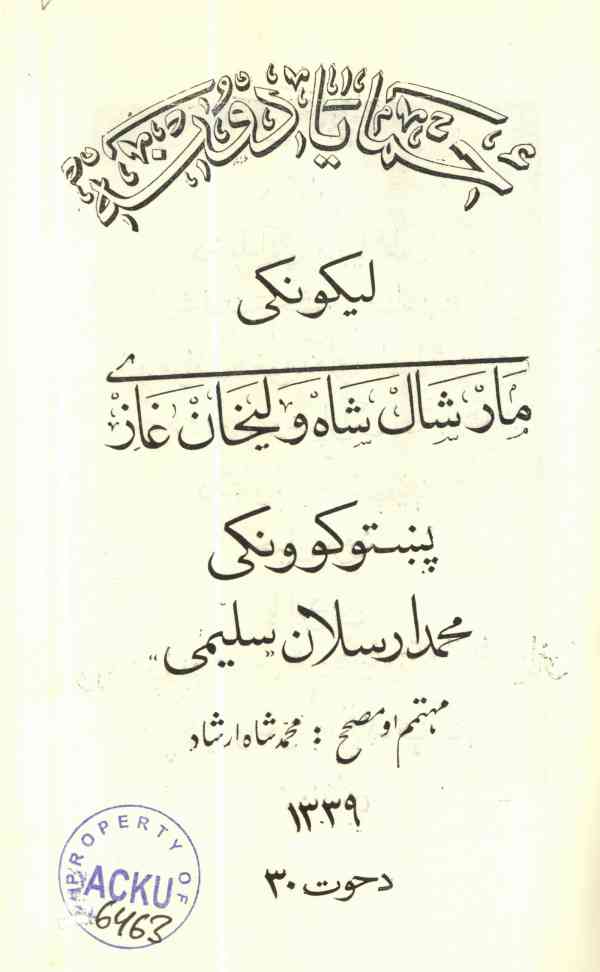 حما یادښتونه
لیکونکی
مارشال شاه ولیخان غازی
پښتوکوونکی
محمد ارسلان «سلیمی»
مهتمم او مصحح : محمد شاه ارشاد
۱۳۳۹
دحوت ۳۰
PROPERTY OF
ACKU
6463